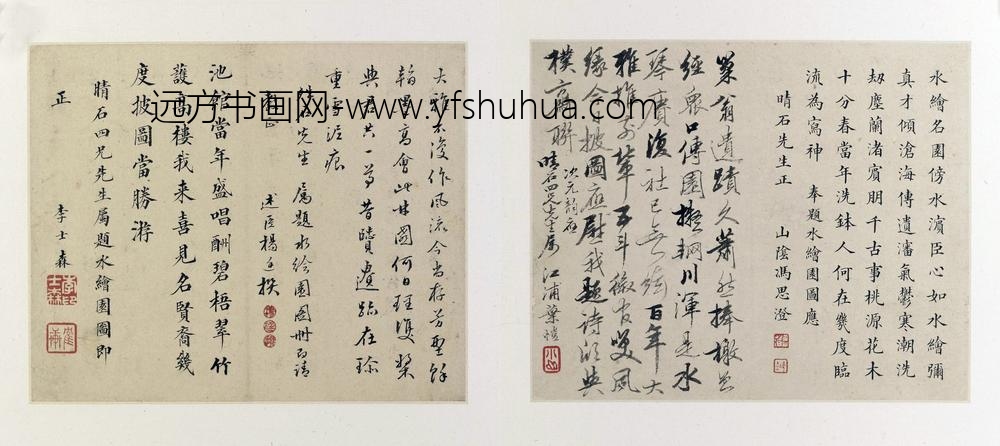 水繪名園傍水濱臣心如水繪彌
真才傾滄海傳遺瀋氣鬱寒潮洗
劫塵蘭渚賓朋千古事桃源花木
十分春當年洗鉢人何在幾度臨
流為寫神 奉題水繪園圖應
晴石先生正 山陰馮思澄
巢翁遺蹟久蕭然捧檄
經眾口傳園擬輞川渾是水
琴賡復社已無 百年大
雅推前輩五斗 友 風
緣今披圖應慰我題詩
樸 聯 次元韻
晴石四兄先生属 江浦葉
大雅不復作風流今尚存芳型餘
翰墨高會此林園何日理雙槳
與君共一尊昔賢遺跡在珍
重 泥痕
先生屬題水绘園圖冊即請
述臣楊
池館當年盛唱酬碧梧翠竹
護高樓我来喜見名賢裔幾
度披圖當勝游
晴石四兄先生屬題水繪園圖即
正 李士森
远方书画网-www.yfshuhua.com